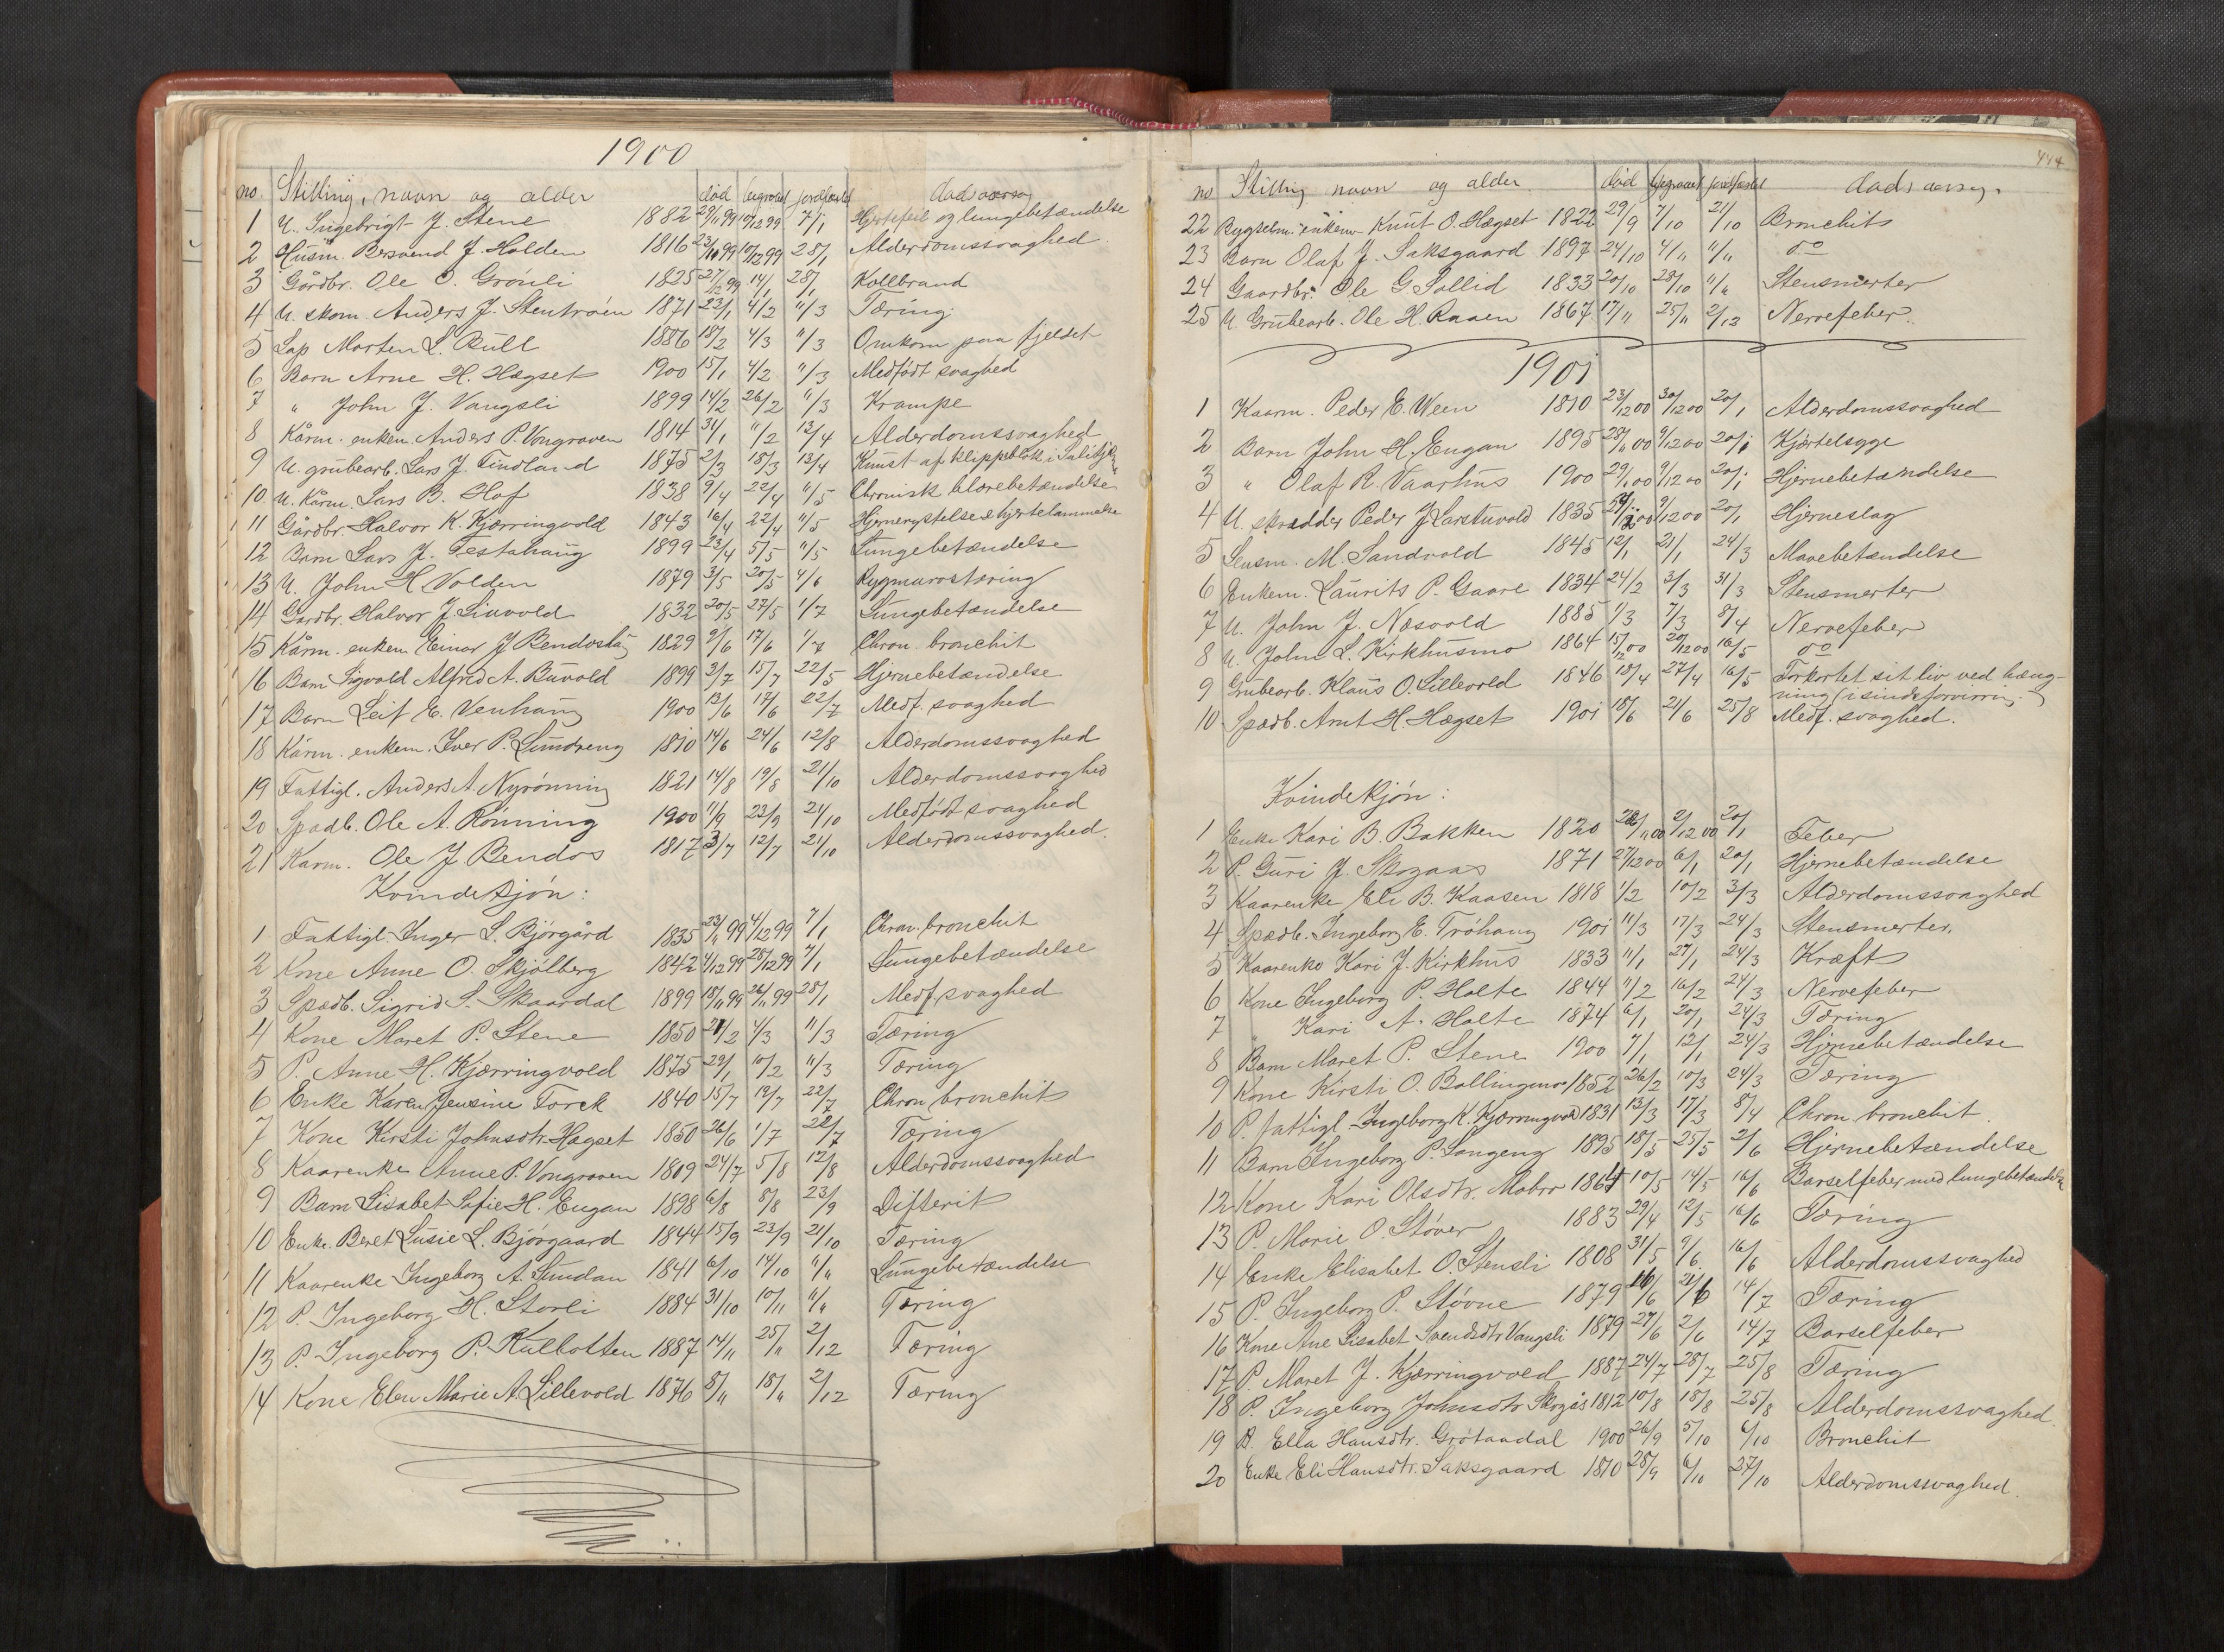 1900
no. Stilling, navn og alder død begravet jordfæstet dødsaarsag
1 U. Ingebrigt J. Stene 1882 29/11 99 10/12 99 7/1 Hjertefeil og lungebetændelse
2 Husm. Bersvend J. Holden 1816 23/11 99 10/12 99 28/1 Alderdomssvaghed
3 Gårdbr. Ole O. Grönli 1825 27/12 99 14/1 28/1 Kolbrand
4 U. skom. Anders J. Stentröen 1871 23/1 4/2 11/3 Tæring
5 Lap Morten L. Bull 1886 18/2 4/3 11/3 Omkom paa fjeldet
6 Barn Arne H. Hægset 1900 15/1 4/2 11/3 Medfödt svaghed
7 " John J. Vangsli 1899 14/2 26/2 11/3 Krampe
8 Kårm. enkem. Anders P. Vongraven 1814 31/1 11/2 13/4 Alderdomssvaghed
9 U. grubearb. Lars J. Tindland 1875 2/3 18/3 13/4 Knust af klippeblok i
10 U. Kårm. Lars B. Hof 1838 9/4 22/4 11/5 Chronisk blærebetændelse
11 Gårdbr. Halvor K. Kjærringvold 1843 16/4 22/4 11/5 Hjernerystelse & hjertelammelse
12 Barn Lars J. Festahaug 1899 23/4 5/5 11/5 Lungebetændelse
13 U. John H. Volden 1879 3/5 20/5 4/6 Rygmarvstæring
14 Gardbr. Halvor J. Liavold 1832 20/5 27/5 1/7 Lungebetændelse
15 Kårm. enkem Einar J Bendos 1829 9/6 17/6 1/7 Chron. bronchit
16 Barn Sigvald Alfred A. Buvold 1899 3/7 15/7 22/5 Hjernebetændelse
17 Barn Leif E. Venhaug 1900 13/6 17/6 22/7 Medf. svaghed
18 Kårm. enkem. Iver P. Lundreng 1810 14/6 24/6 12/8 Alderdomssvaghed
19 Fattigl. Anders A. Nyrönning 1821 14/8 19/8 21/10 Alderdomssvaghed
20 Spædb. Ole A. Rönning 1900 11/9 23/9 21/10 Medfödt svaghed
21 Karm. Ole J Bendos 1817 3/7 12/7 21/10 Alderdomssvaghed.
Kvindekjön:
1 Fattigl. Inger L. Bjørgård 1835 23/11 99 4/12 99 7/1 Chron. bronchit
2 Kone Anne O. Skjölberg 1842 4/12 99 28/12 99 7/1 Lungebetændelse
3 Spædb. Sigrid S. Skaardal 1899 18/11 99 26/11 99 28/1 Medf. svaghed
4 Kone Maret P. Stene 1850 21/2 4/3 11/3 Tæring
5 P. Anne H. Kjærringvold 1875 29/1 10/2 11/3 Tæring
6 Enke Karen Jensine Torck 1840 15/7 19/7 22/7 Chron bronchit
7 Kone Kirsti Johnsdtr. Hægset 1850 26/6 1/7 22/7 Tæring
8 Kaarenke Anne P. Vongraven 1809 24/7 5/8 12/8 Alderdomssvaghed
9 Barn Lisabet Sofie H. Eugan 1898 6/8 8/8 23/9 Difterit
10 Enke. Beret Lusie L. Björgaard 1844 15/9 23/9 21/10 Tæring
11 Kaarenke Ingeborg A. Sundan 1841 6/10 14/10 11/11 Lungebetændelse
12 P. Ingeborg H. Storli 1884 31/10 10/11 11/11 Tæring
13 P. Ingeborg P. Kulbotten 1887 14/11 25/11 2/12 Tæring
14 Kone Elen Marie A. Lillevold 1876 8/11 18/11 2/12 Tæring
444
no Stilling navn og alder. död begravet jordfæstet dødsaarsag.
22 Bygselm. enkem Knut O. Hægset 1822 29/9 7/10 21/10 Bronchit
23 Barn Olaf J. Saksgaard 1897 24/10 4/11 11/11 do
24 Gaardbr. Ole G Sollid 1833 20/10 28/10 11/11 Stensmerter
25 U. Grubearb. Ole H. Raaen 1867 17/11 25/11 2/12 Nervefeber.
1901
1 Kaarm. Peder E. Ween 1810 23/12 00 30/12 00 20/1 Alderdomssvaghed
2 Barn John H. Eugan 1895 28/11 00 9/12 00 20/1 Kjertelsyge
3 " Olaf R. Vaarhus 1900 29/11 00 9/12 00 20/1 Hjernebetændelse
4 U. skrædder Peder J Larstuvold 1835 9/12 00 20/1 Hjerneslag
5 Lensm. M. Sandvold 1845 12/1 21/1 24/3 Mavebetændelse
6 Enkem. Laurits P. Gaare 1834 24/2 3/3 31/3 Stensmerter
7 U. John J. Næsvold 1885 1/3 7/3 8/4 Nervefeber
8 U. John L. Kirkhusmo 1864 15/12 00 20/12 00 16/5 do
9 Grubearb. Klaus O. Lillevold 1846 18/4 27/4 16/5 Forkortet sit liv ved hæng-
ning (i sindsforvirring.)
10 Spædb. Arnt H. Hægset 1901 18/6 21/6 25/8 Medf. svaghed.
Kvindekjön:
1 Enke Kari B. Bakken 1820 28/11 00 2/12 00 20/1 Feber
2 P. Guri J. Skogaas 1871 27/12 00 6/1 20/1 Hjernebetændelse
3 Kaarenke Eli B. Kaasen 1818 1/2 10/2 3/3 Alderdomssvaghed
4 Spædb. Ingeborg E. Tröhaug 1901 11/3 17/3 24/3 Stensmerter.
5 Kaarenke Kari J. Kirkhus 1833 11/1 27/1 24/3 Kræft
6 Kone Ingeborg P. Holte 1844 11/2 16/2 24/3 Nervefeber
7 " Kari A. Holte 1874 6/1 20/1 24/3 Tæring
8 Barn Maret P. Stene 1900 7/1 12/1 24/3 Hjernebetændelse
9 Kone Kirsti O. Bollingmo 1852 26/2 10/3 24/3 Tæring
10 P. fattigl. Ingeborg K. Kjærringvold 1831 13/3 17/3 8/4 Chron. bronchit.
11 Barn Ingeborg P. Langeng 1895 18/5 25/5 2/6 Hjernebetændelse
12 Kone Kari Olsdtr. Mobro 1864 10/5 14/5 16/6 Barselfeber med lungebetændelse
13 P. Marie O. Støver 1883 29/4 12/5 16/6 Tæring
14 Enke Elisabet O. Stensli 1808 31/5 9/6. 16/6 Alderdomssvaghed
15 P. Ingeborg P. Stövne 1879 16/6 21/6 14/7 Tæring
16 Kone Ane Lisabet Svendsdtr Vangsli 1879 27/6 2/6 14/7 Barselfeber
17 P. Maret J. Kjærringvold 1887 24/7 28/7 25/8 Tæring
18 P. Ingeborg Johnsdtr Skogås 1812 10/8 18/8 25/8 Alderdomssvaghed.
19 B. Ella Hansdtr. Grötaadal 1900 26/9 5/10 6/10 Bronchit
20 Enke Eli Hansdtr. Saksgaard 1810 28/9 6/10 27/10 Alderdomssvaghed.